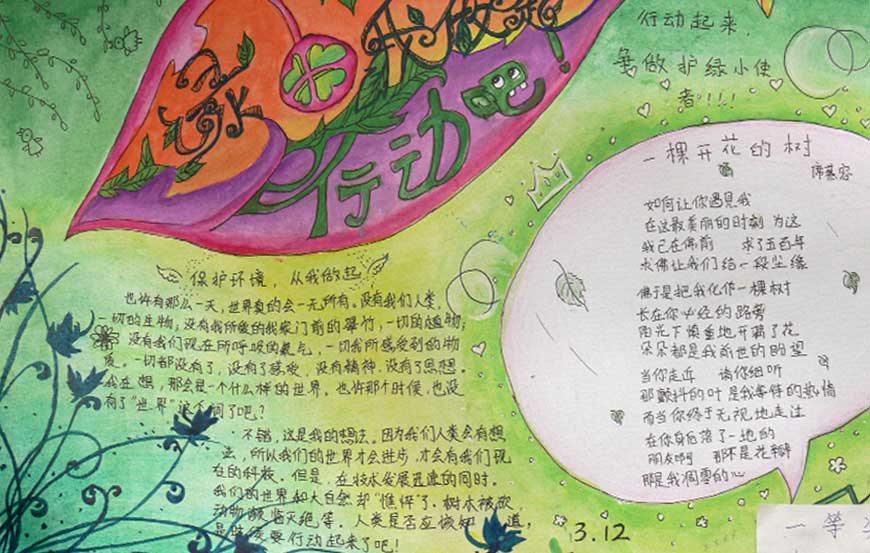 绿水
我做起
行动吧！
行动起来，
争做护绿小使
者！！！
保护环境，从我做起
也许有那么一天，世界真的会一无所有。没有我们人类，
一切的生物；没有我所爱的我家门前的翠竹，一切的植物；
没有我们现在所呼吸的氧气，一切我所感受到的物
质。一切都没有了，没有了感受，没有精神，没有了思想。
我在想，那会是一个什么样的世界。也许那个时候，也没
有了“世界”这个词了吧？
不错，这是我的想法。因为我们人类会有想
法，所以我们的世界才会进步，才会有我们现
在的科技。但是，在技术发展迅速的同时。
我们的世界和大自然却“憔悴”了，树木被砍，
动物濒临灭绝等。人类是否应该知道，
是时候要行动起来了吧！
一棵开花的树
席慕容
如何让你遇见我
在这最美丽的时刻 为这
我已在佛前 求了五百年
求佛让我们结一段尘缘
佛于是把我化作一棵树
长在你必经的路旁
阳光下慎重地开满了花
朵朵都是我前世的盼望
当你走近 请你细听
那颤抖的叶是我等待的热情
而当你终于无视地走过
在你身后落了一地的
朋友啊 那不是花瓣
那是我凋零的心
3.12
一等